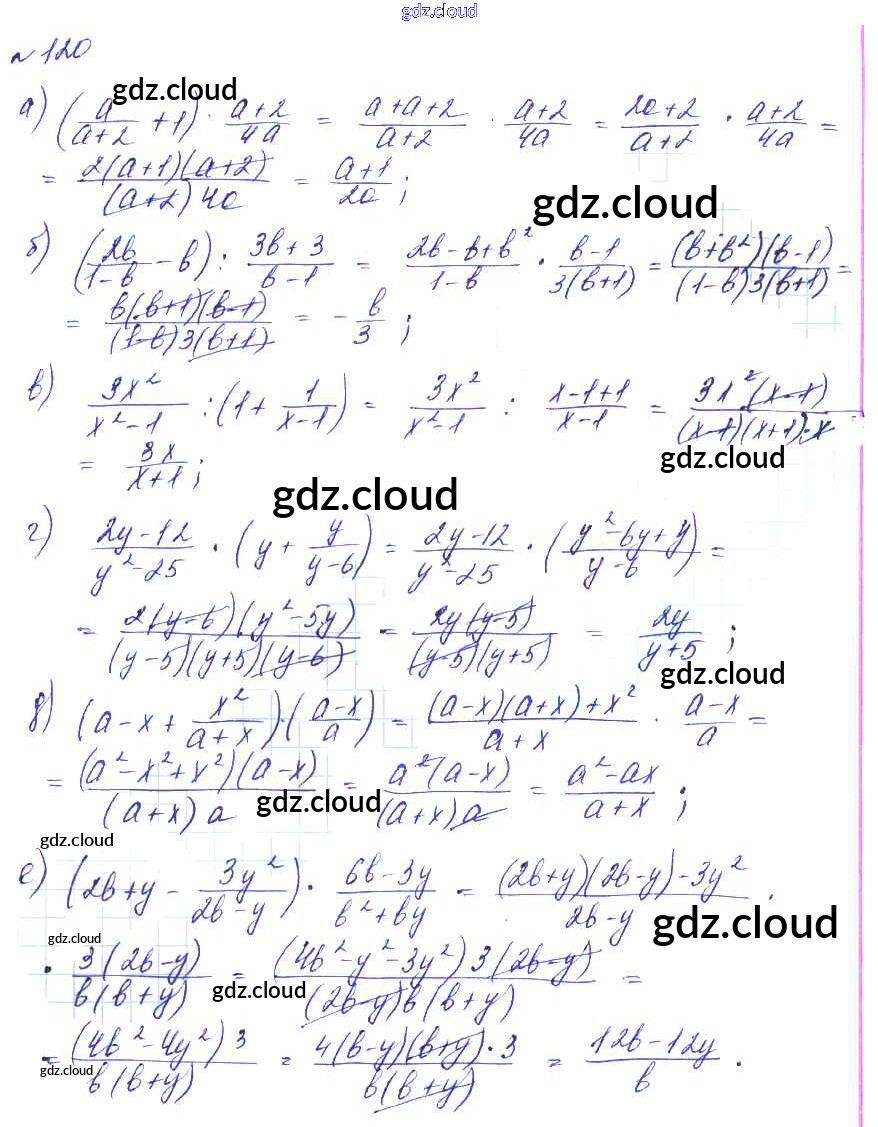 gdz.cloud
№120
gdz.cloud
а) (a/(a+2) + 1) · (a+2)/4a = (a+a+2)/(a+2) · (a+2)/4a = (2a+2)/(a+2) · (a+2)/4a =
= 2(a+1)(a+2)/((a+2)4a) = (a+1)/2a ;
gdz.cloud
б) (2b/(1-b) - b) : (3b+3)/(b-1) = (2b-b+b²)/(1-b) · (b-1)/(3(b+1)) = (b+b²)(b-1)/((1-b)3(b+1)) =
= b(b+1)(b-1)/((1-b)3(b+1)) = - b/3 ;
в) 3x²/(x²-1) : (1 + 1/(x-1)) = 3x²/(x²-1) : (x-1+1)/(x-1) = 3x²(x-1)/((x-1)(x+1)·x)
gdz.cloud
= 3x/(x+1) ;
gdz.cloud
г) (2y-12)/(y²-25) · (y + y/(y-6)) = (2y-12)/(y²-25) · ((y²-6y+y)/(y-6)) =
= 2(y-6)(y²-5y)/((y-5)(y+5)(y-6)) = 2y(y-5)/((y-5)(y+5)) = 2y/(y+5) ;
gdz.cloud
д) (a-x + x²/(a+x)) · ((a-x)/a) = ((a-x)(a+x)+x²)/(a+x) · (a-x)/a =
= (a²-x²+x²)(a-x)/((a+x)a) = a²(a-x)/((a+x)a) = (a²-ax)/(a+x) ;
gdz.cloud
gdz.cloud
е) (2b+y - 3y²/(2b-y)) · (6b-3y)/(b²+by) = ((2b+y)(2b-y)-3y²)/(2b-y) ·
gdz.cloud
gdz.cloud
· 3(2b-y)/(b(b+y)) = (4b²-y²-3y²)3(2b-y)/((2b-y)b(b+y)) =
gdz.cloud
= (4b²-4y²)3/(b(b+y)) = 4(b-y)(b+y)·3/(b(b+y)) = (12b-12y)/b .
gdz.cloud